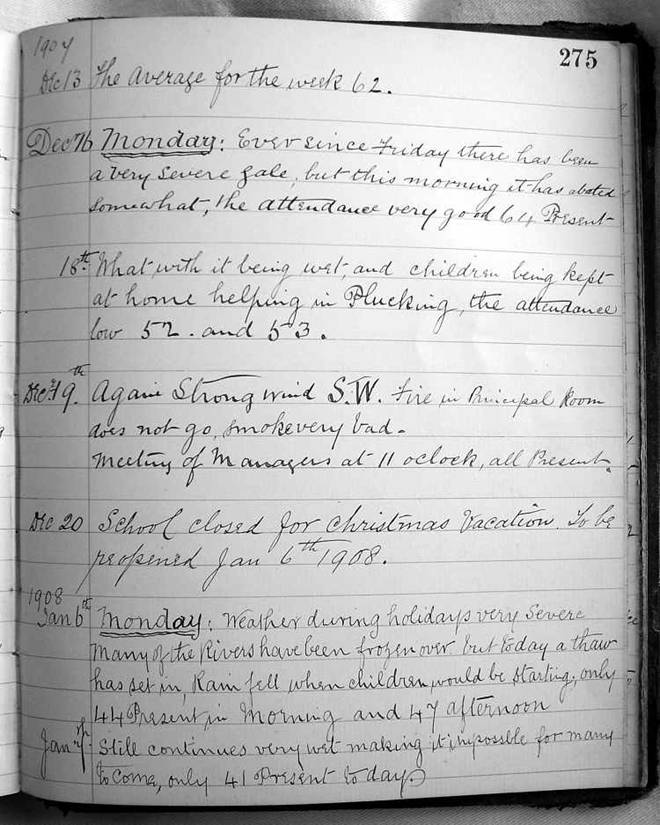 275
1907
Dec 13 The Average for the week 62.
Dec 16 Monday: Ever since Friday there has been
a very severe gale, but this morning it has abated
somewhat, the attendance very good 64 Present
18th What with it being wet and children being kept
at home helping in Plucking, the attendance
low 52. and 53.
Dec 19th. Again Strong wind S.W. Fire in Principal Room
does not go, smoke very bad.
Meeting of Managers at 11 oclock, all Present.
Dec 20 School closed for Christmas Vacation. To be
reopened Jan 6th 1908.
1908
Jan 6th Monday: Weather during holidays very Severe
Many of the Rivers have been frozen over but today a thaw
has set in, Rain fell when children would be starting, only
44 Present in Morning and 47 afternoon
Jan 7th. Still continues very wet making it impossible for many
to come, only 41 Present to day